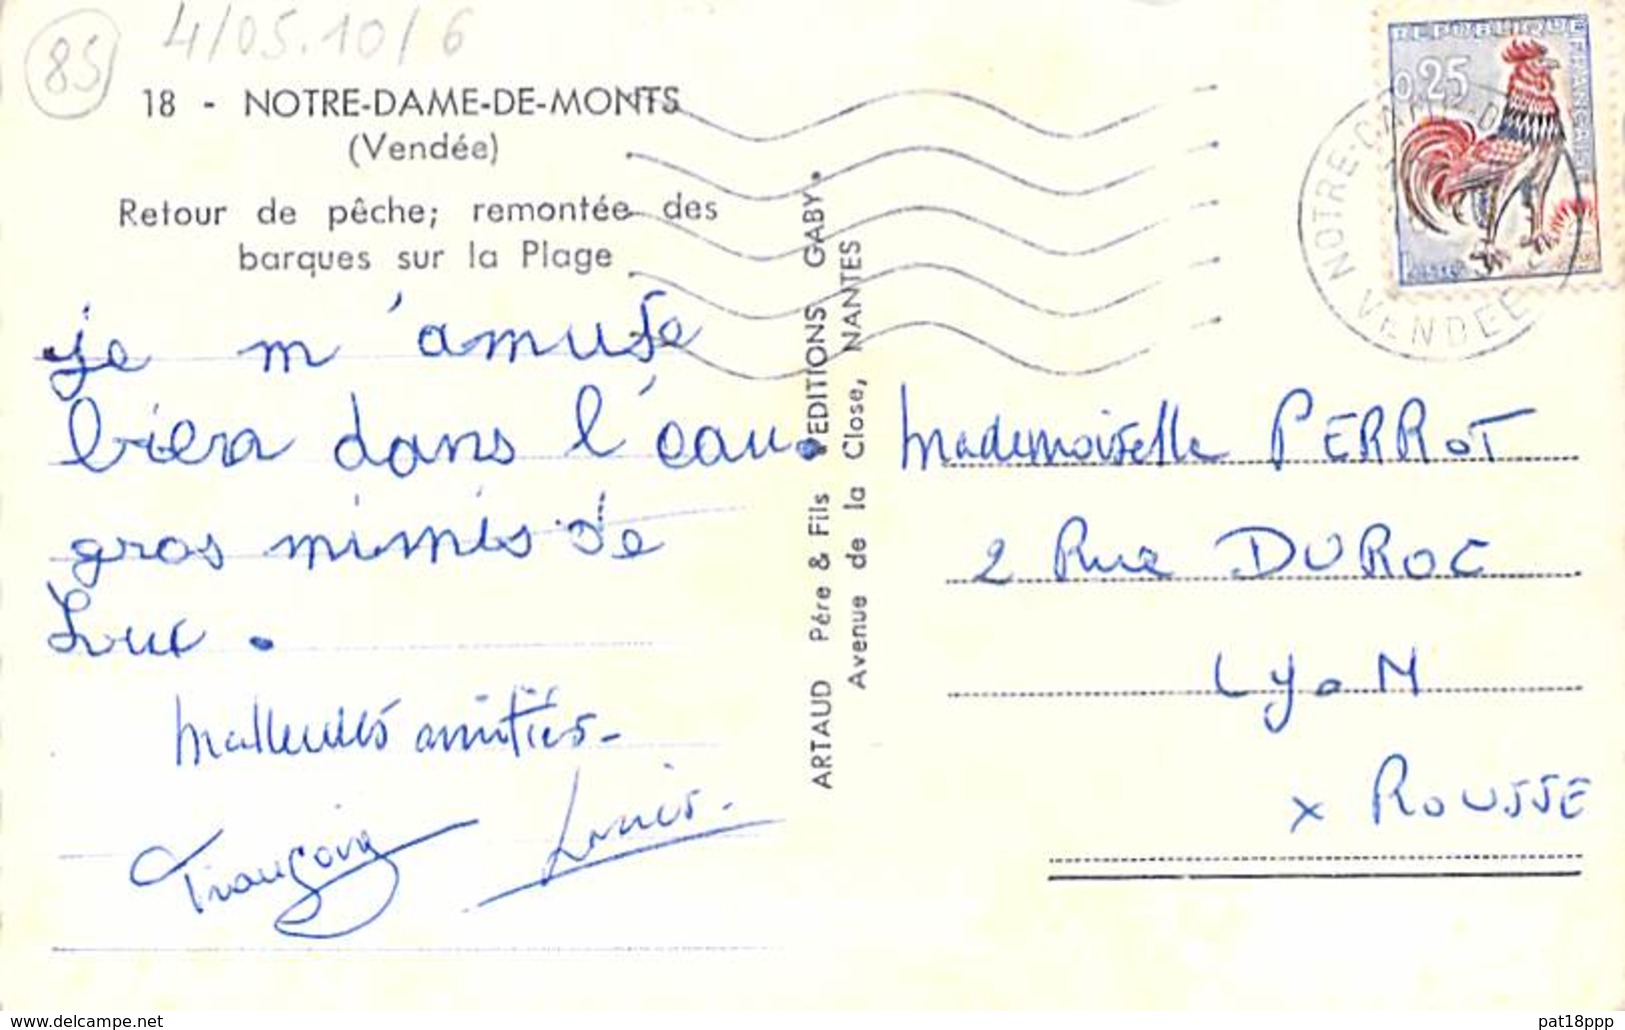 85
4/05.10/6
18 - NOTRE-DAME-DE-MONTS
(Vendée)
Retour de pêche; remontée des
barques sur la Plage
je m'amuse
bien dans l'eau.
gros mimis de
Luc.
Meilleures amitiés -
Françoise Louis.
ARTAUD Pére & Fils EDITIONS GABY.
Avenue de la Close, NANTES
REPUBLIQUE FRANÇAISE
0,25
NOTRE-DAME-D
VENDEE
Mademoiselle PERROT
2 Rue DUROC
LyoN
x ROUSSE
www.delcampe.net
pat18ppp